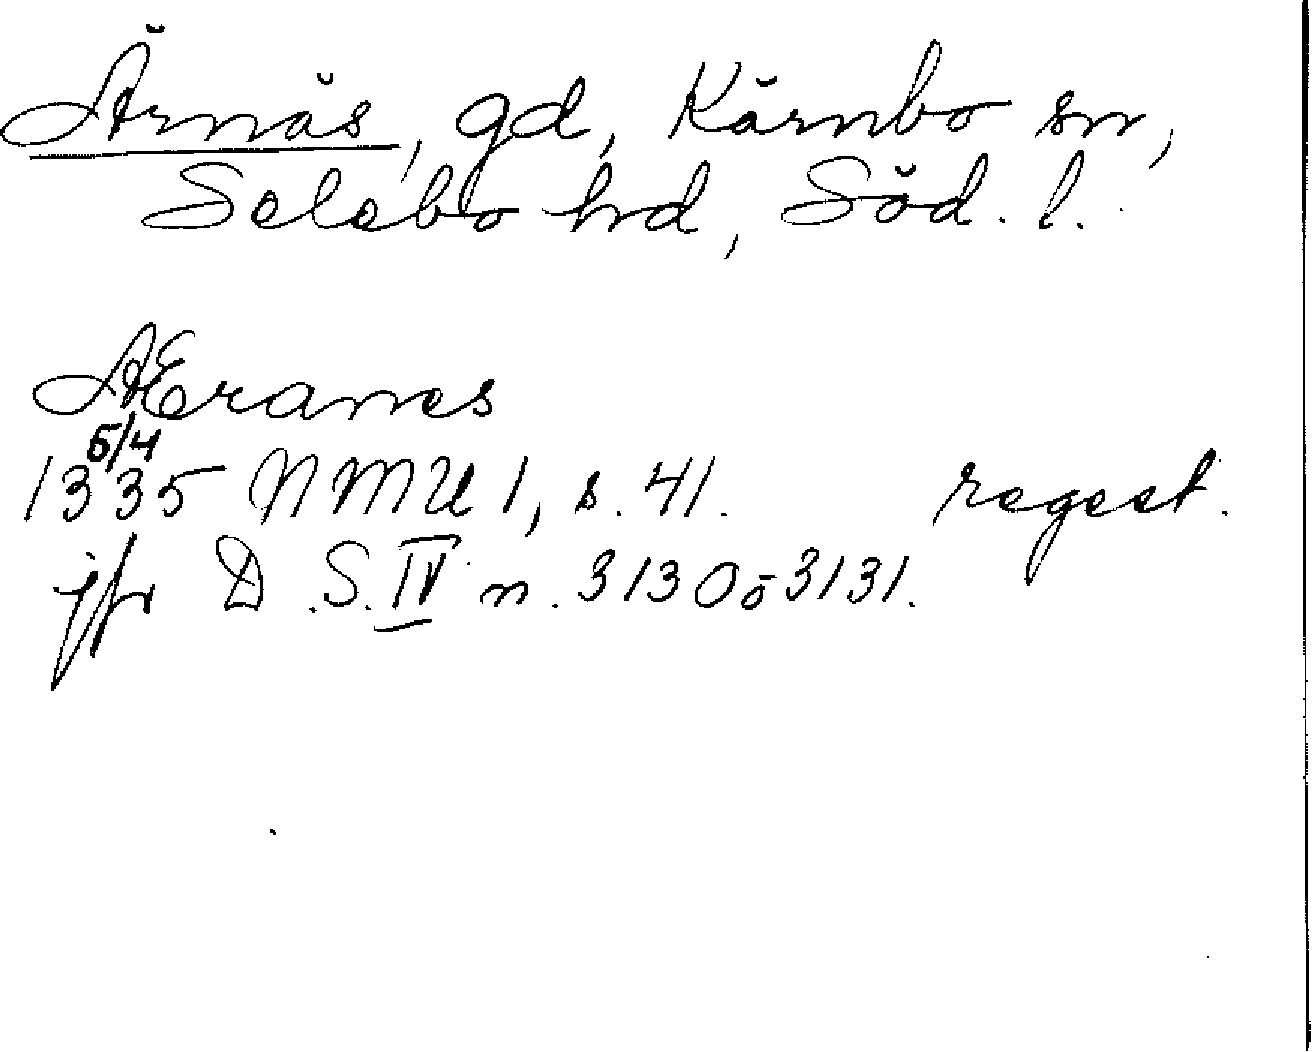 Ärnäs, gd, Kärnbo sn,
Selebo hd, Söd. l.
AEranes
5/4
1335 NMU 1, s. 41. regest.
jfr D.S. IV n. 3130 o 3131.